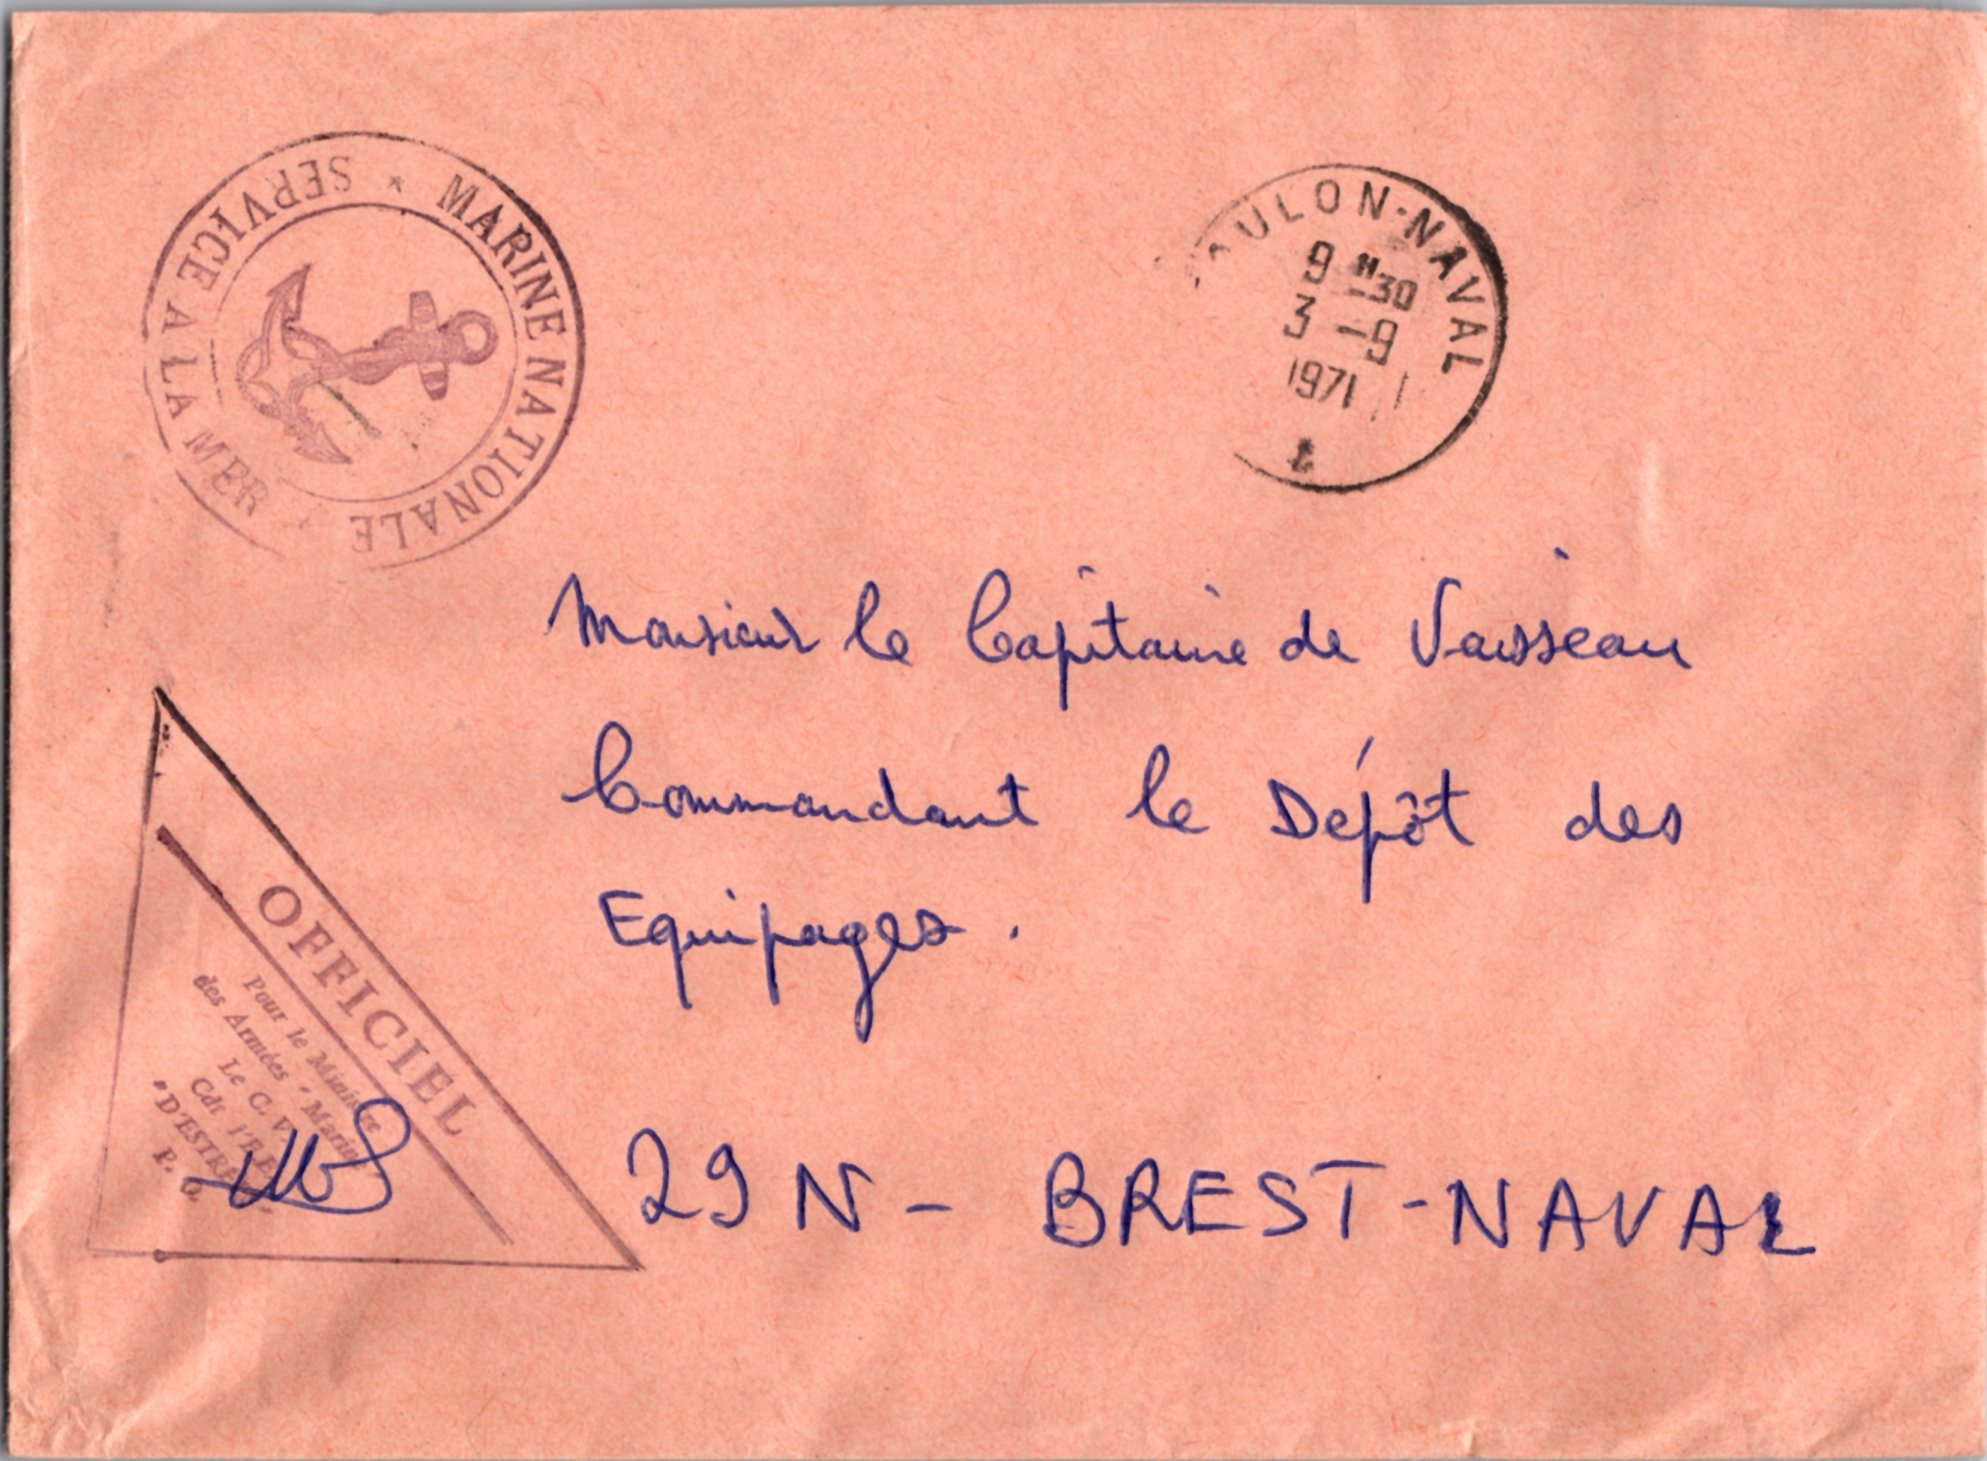 MARINE NATIONALE * SERVICE A LA MER
OULON-NAVAL
9 H30
3 -9
1971
Monsieur le Capitaine de Vaisseau
Commandant le Dépôt des
Equipages.
29 N - BREST-NAVAL
OFFICIEL
Pour le Ministre
des Armées "Marine
Le C. V.
Cdt l'E.
"D'ESTRÉ
P. O.